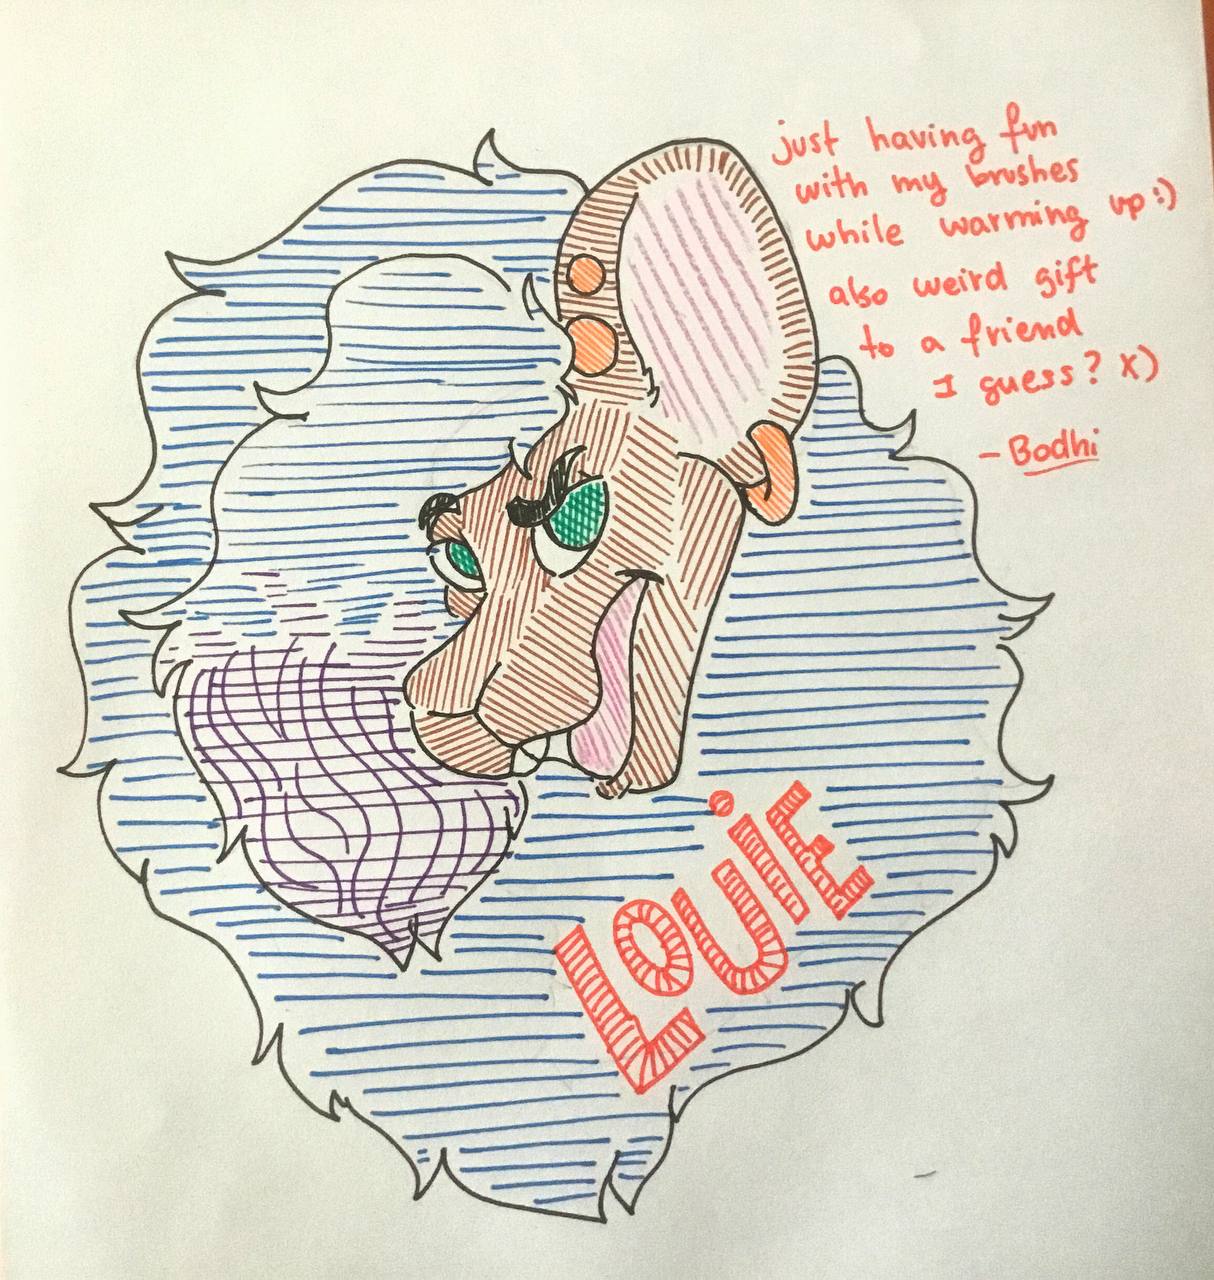 just having fun
with my brushes
while warming up :)
also weird gift
to a friend
I guess? x)
- Bodhi
LOUiE